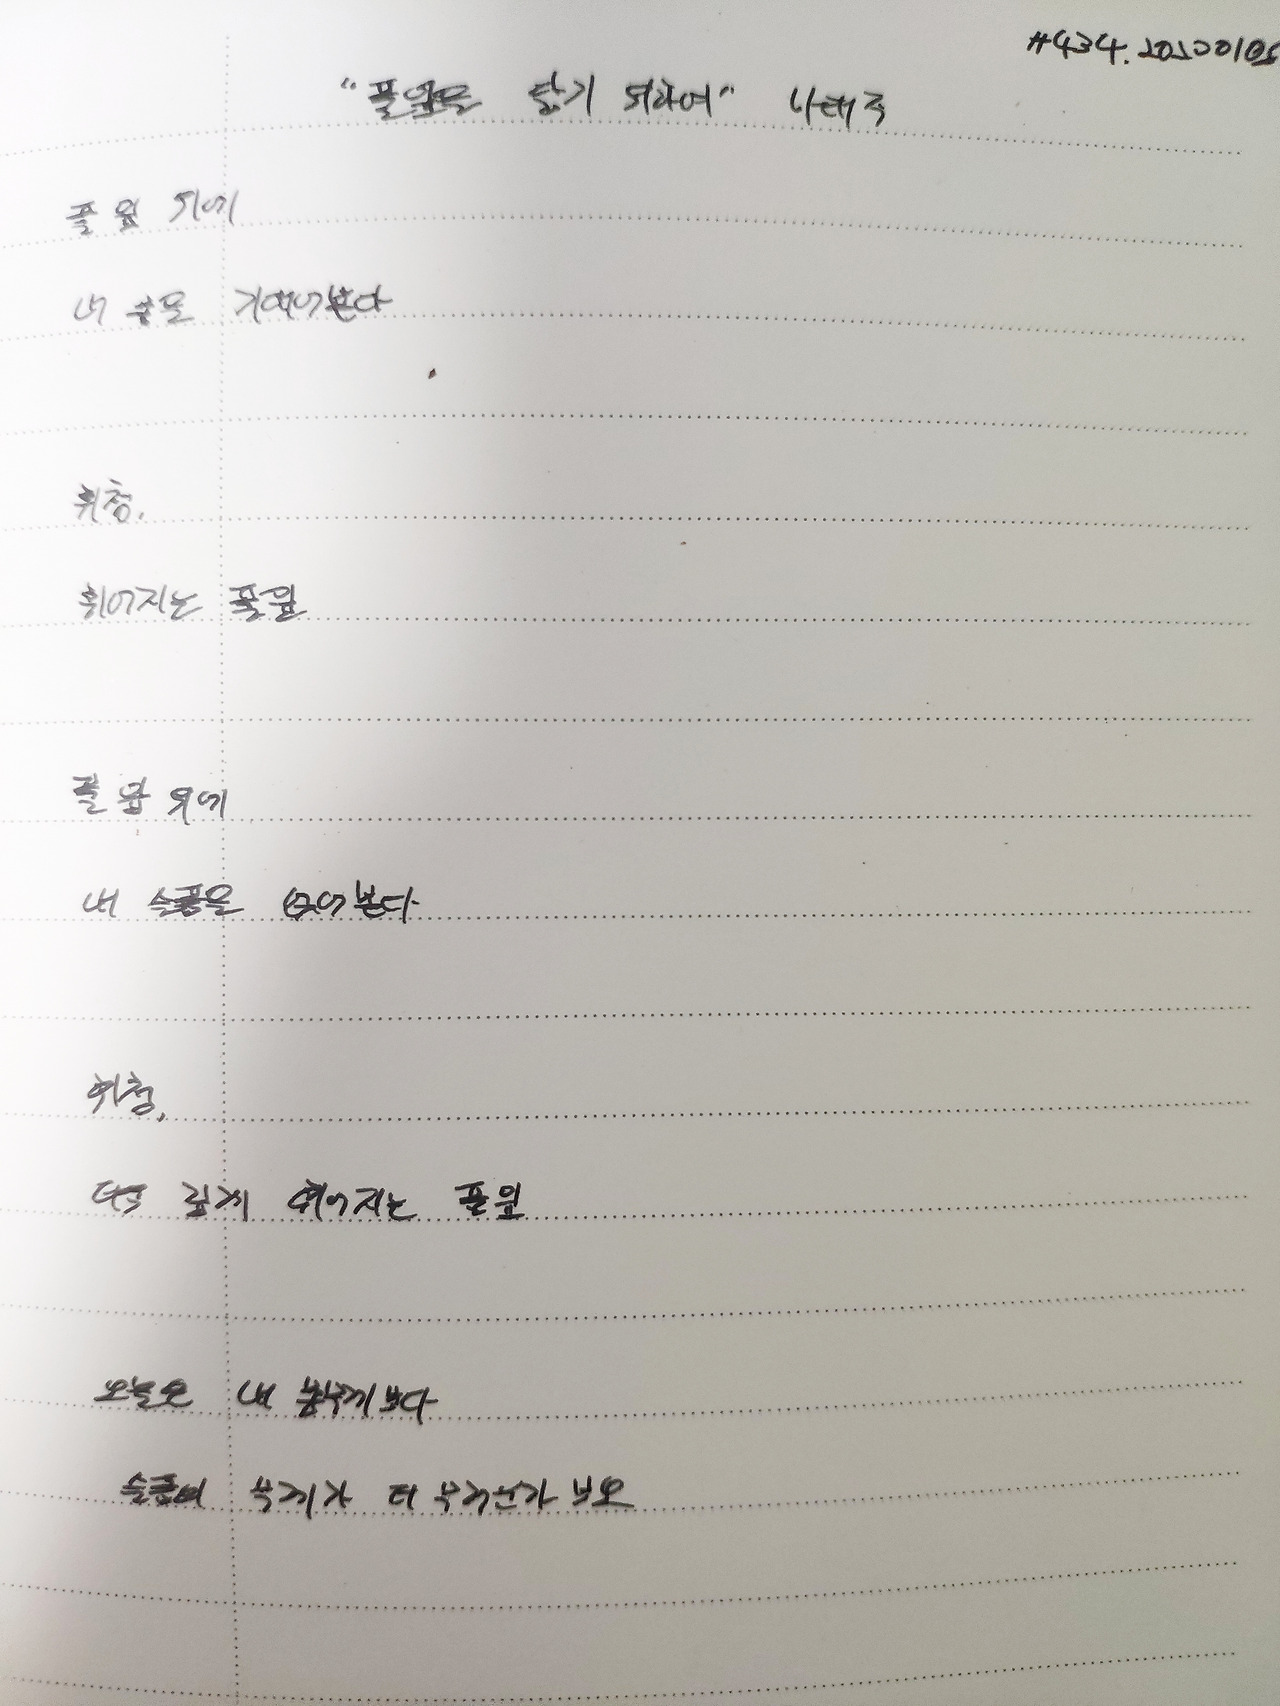 #434. 20200105
"풀잎을 닮기 위하여" 나태주
풀잎 위에
내 몸을 기대어본다
휘청,
휘어지는 풀잎
풀잎 위에
내 슬픔을 얹어본다
휘청,
더욱 깊게 휘어지는 풀잎
오늘은 내 몸무게보다
슬픔의 무게가 더 무거운가 보오